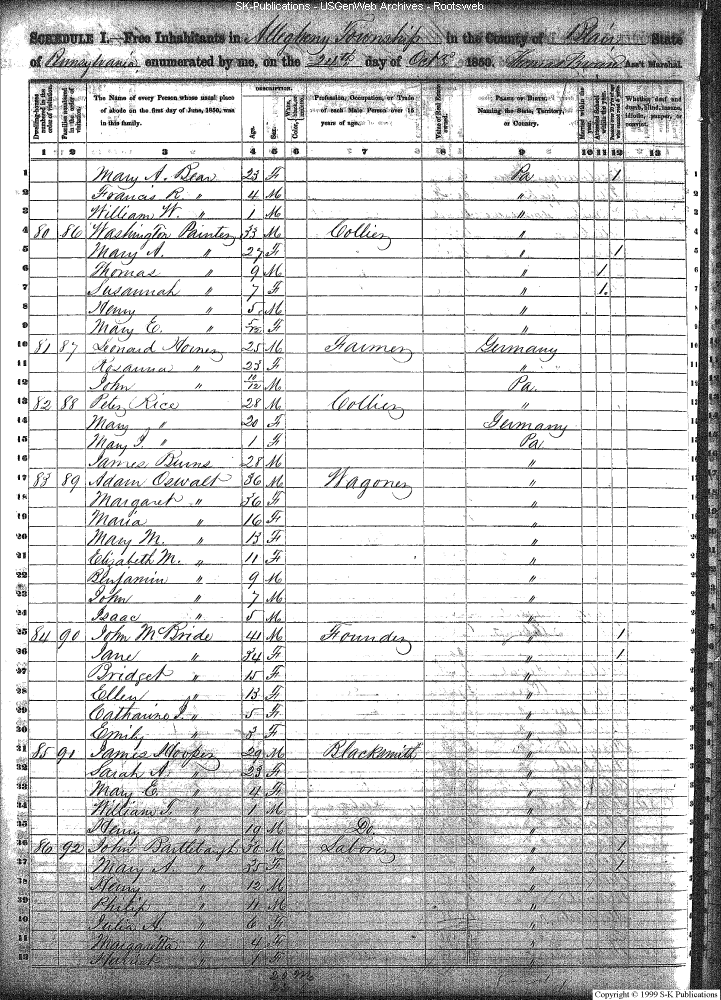 SK-Publications - USGenWeb Archives - Rootsweb
SCHEDULE I.—Free Inhabitants in Allegheny Township in the County of Blair State
of Pennsylvania enumerated by me, on the day of Octr 1850. Ass't Marshal.
DESCRIPTION.
Dwelling-houses numbered in the order of visitation.
Families numbered in the order of visitation.
The Name of every Person whose usual place of abode on the first day of June, 1850, was in this family.
Age.
Sex.
Profession, Occupation, or Trade of each Male Person over 15 years of age.
Value of Real Estate owned.
PLACE OF BIRTH. Naming the State, Territory, or Country.
Married within the year.
Whether deaf and dumb, blind, insane, idiotic, pauper, or convict.
1 2 3 4 5 6 7 8 9 10 11 12 13
1 Mary A. Bear 23 F Pa 1
2 Francis R. " 4 M "
3 William W. " 1 M "
4 80 86 Washington Painter 33 M Collier "
5 Mary A. " 27 F " 1
6 Thomas " 9 M " 1
7 Susannah " 7 F " 1
8 Henry " 5 M "
9 Mary E. " F "
10 81 87 Leonard 25 M Farmer Germany
11 Rosanna " 23 F "
12 John " 10/12 M Pa.
13 82 88 Peter Rice 28 M Collier "
14 Mary " 20 F Germany
15 Mary J. " 1 F Pa
16 James Burns 28 M "
17 83 89 Adam Oswalt 36 M Wagoner "
18 Margaret " 36 F "
19 Maria " 16 F "
20 Mary M. " 13 F "
21 Elizabeth M. " 11 F "
22 Benjamin " 9 M "
23 John " 7 M "
24 Isaac " 5 M "
25 84 90 John McBride 41 M Founder " 1
26 Jane " 34 F " 1
27 Bridget " 15 F "
28 Ellen " 13 F "
29 Catharine J. " 5 F "
30 Emily " 3 F "
31 85 91 James Hooper 29 M Blacksmith "
32 Sarah A. " 23 F "
33 Mary E. " 4 F "
34 William T. " 1 M "
35 Henry " 19 M Do. "
36 86 92 John Bartlebaugh 36 M Laborer " 1
37 Mary A. " 35 F " 1
38 Henry " 12 M "
39 Philip " 11 M "
40 Julia A. " 6 F "
41 Margaretta " 4 F "
42 Harriet " 1 F "
Copyright © 1999 S-K Publications